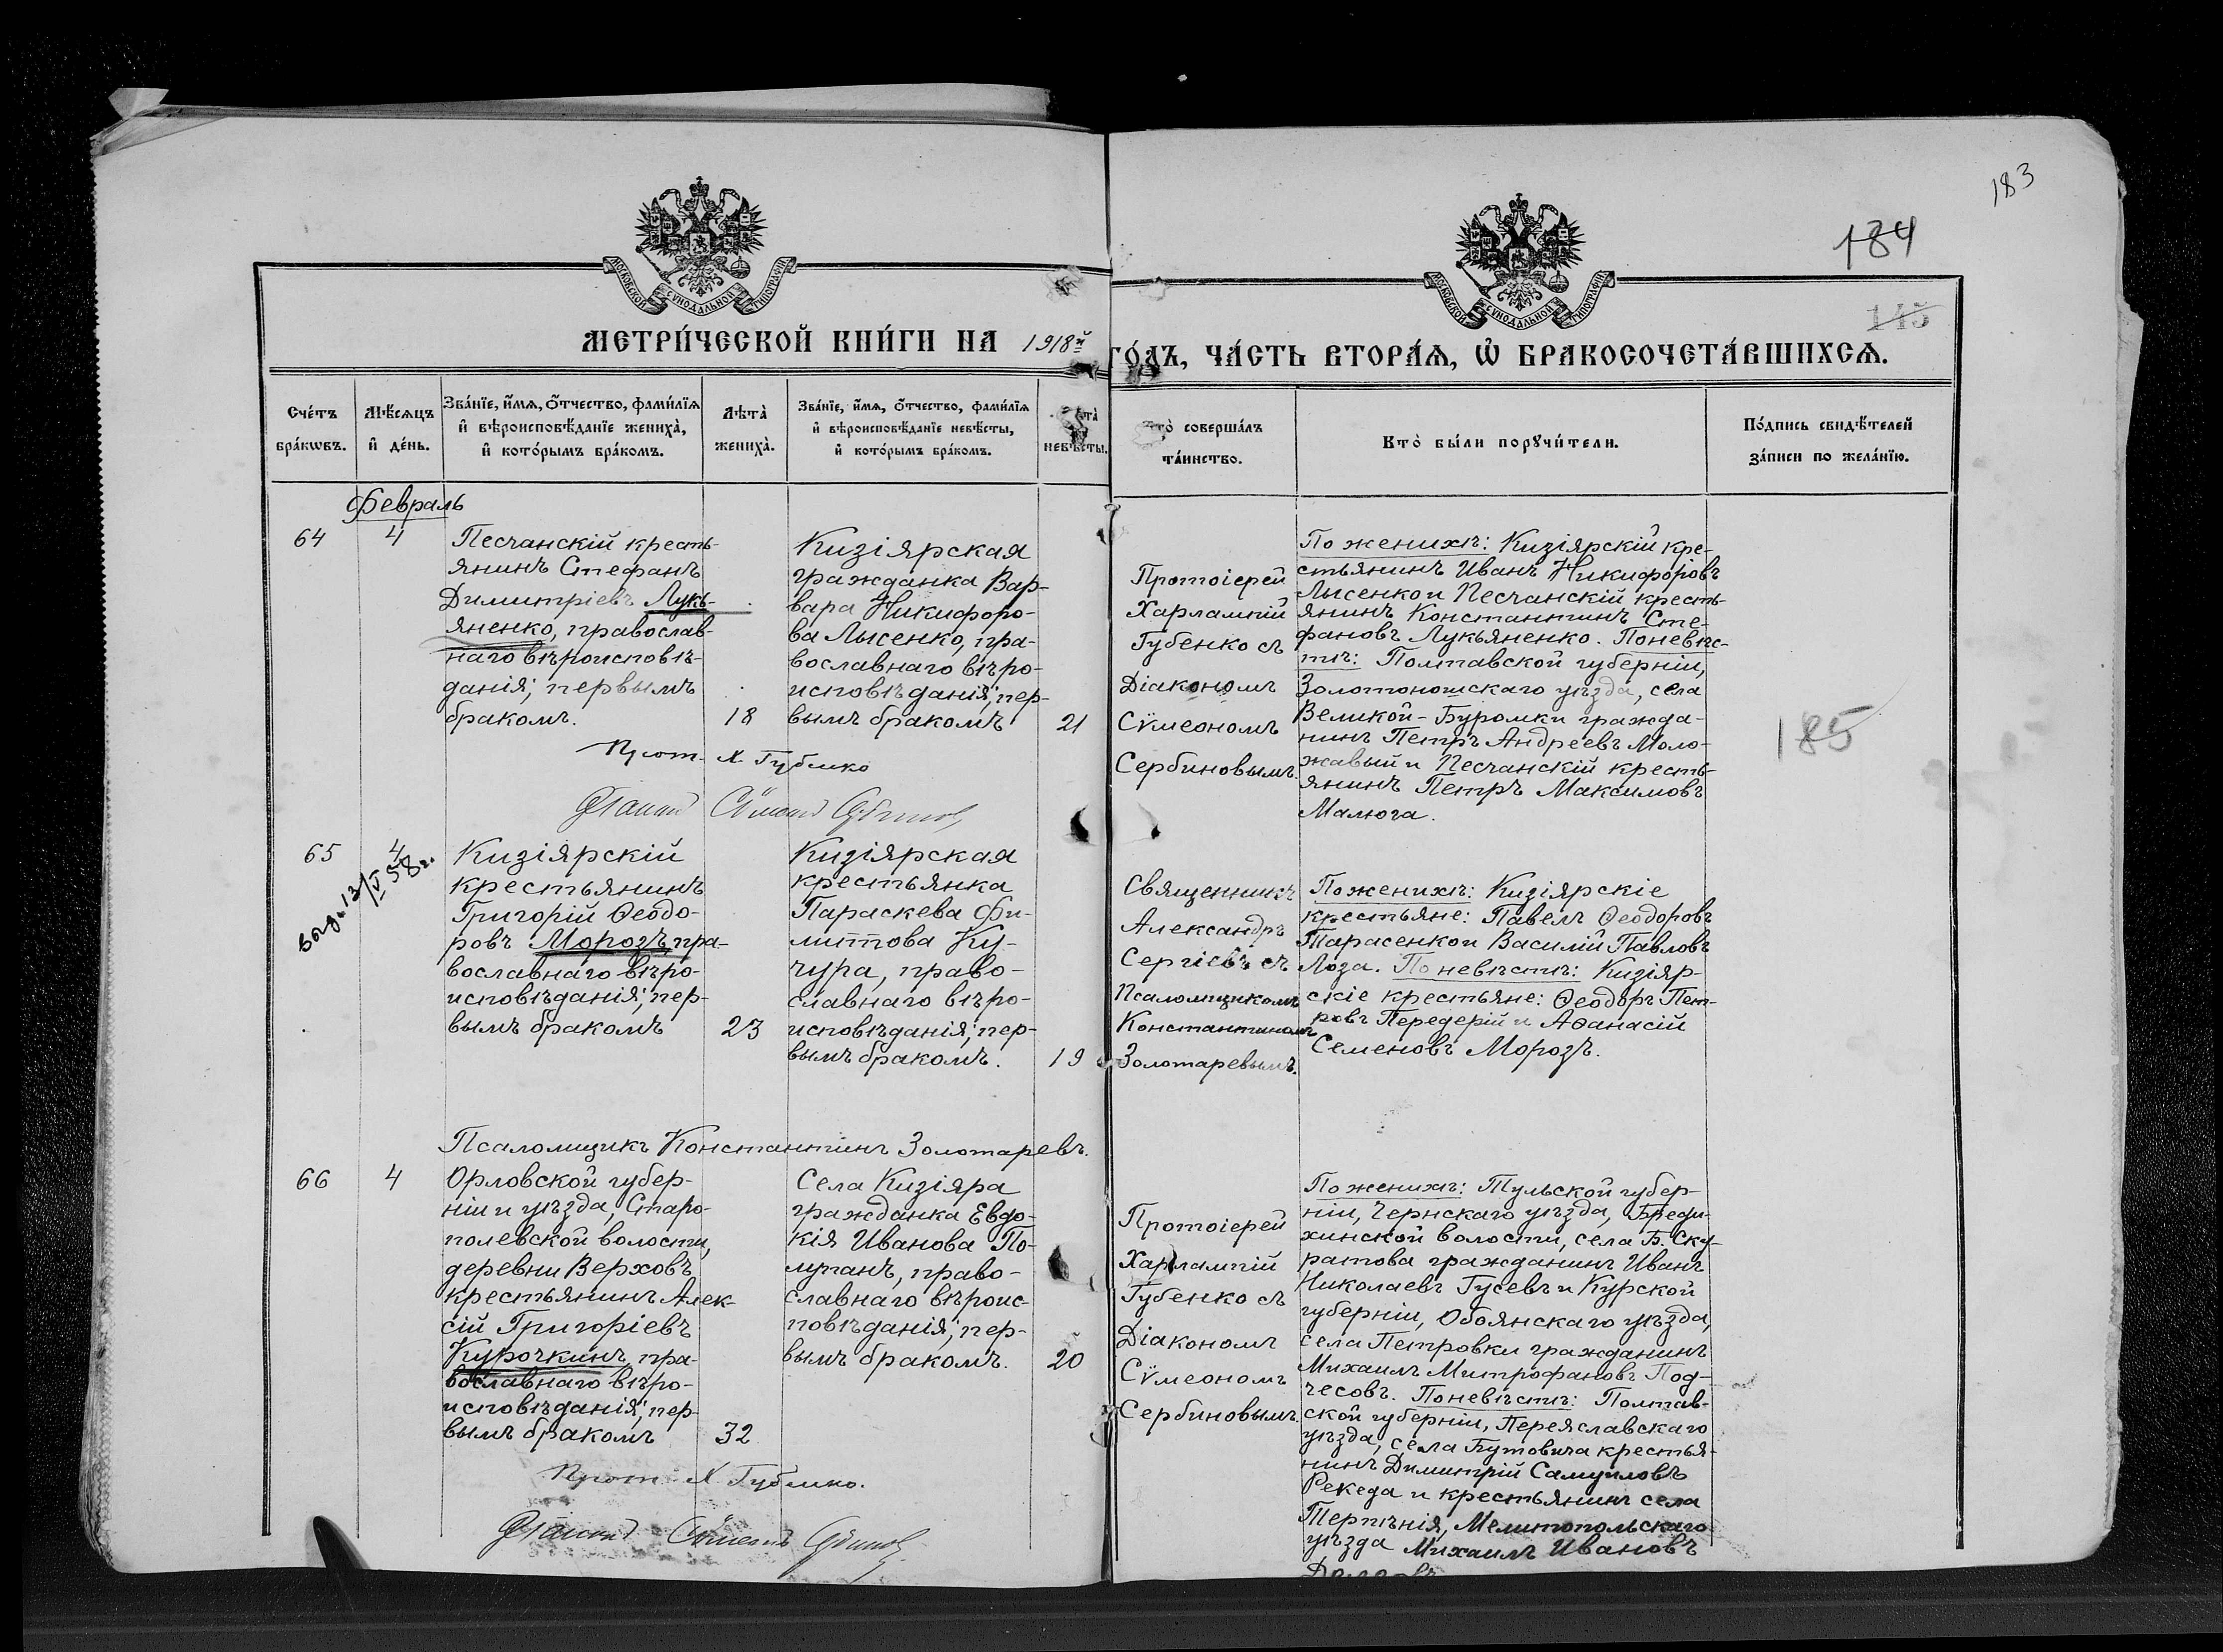 183
184
145
МОСКОВСКОЙ СѴНОДАЛЬНОЙ ТИПОГРАФІИ
МОСКОВСКОЙ СѴНОДАЛЬНОЙ ТИПОГРАФІИ
МЕТРИ́ЧЕСКОЙ КНИ́ГИ НА 1918й
ГО́ДЪ, ЧА́СТЬ ВТОРА́Я, Ѽ БРАКОСОЧЕТА́ВШИХСЯ.
Сче́тъ
бра́кѡвъ.
Мѣ́сяцъ
и҆ де́нь.
Зва́нїе, и҆́мя, ѻ҆́тчество, фами́лїя
и҆ вѣроисповѣ́данїе жениха̀,
и҆ кото́рымъ бра́комъ.
Лѣта̀
жениха̀.
Зва́нїе, и҆́мя, ѻ҆́тчество, фами́лїя
и҆ вѣроисповѣ́данїе невѣ́сты,
и҆ кото́рымъ бра́комъ.
невѣ́сты.
соверша́лъ
та́инство.
Кто̀ бы́ли порꙋчи́тели.
По́дпись свидѣ́телей
за́писи по жела́нїю.
Февраль
64
4
Песчанскій кресть-
янинъ Стефанъ
Димитріевъ Лукь-
яненко, православ-
наго вѣроисповѣ-
данія; первымъ
бракомъ.
18
Кизіярская
гражданка Вар-
вара Никифоро-
ва Лысенко, пра-
вославнаго вѣро-
исповѣданія; пер-
вымъ бракомъ
21
Протоіерей
Харлампій
Губенко съ
Діакономъ
Сѷмеономъ
Сербиновымъ.
По женихѣ: Кизіярскій кре-
стьянинъ Иванъ Никифоровъ
Лысенко и Песчанскій кресть-
янинъ Константинъ Сте-
фановъ Лукьяненко. По невѣс-
тѣ: Полтавской губерніи,
Золотоношскаго уѣзда, села
Великой-Буромки гражда-
нинъ Петръ Андреевъ Моло-
жавый и Песчанскій кресть-
янинъ Петръ Максимовъ
Малюга.
185
Прот. Х. Губенко
Діаконъ Сѷмеонъ Сербиновъ
65
4
выд. 13/V 58 г.
Кизіярскій
крестьянинъ
Григорій Ѳеодо-
ровъ Морозъ, пра-
вославнаго вѣро-
исповѣданія; пер-
вымъ бракомъ
23
Кизіярская
крестьянка
Параскева Фи-
липпова Ку-
чура, право-
славнаго вѣро-
исповѣданія; пер-
вымъ бракомъ.
19
Священникъ
Александръ
Сергіевъ съ
Псаломщикомъ
Константиномъ
Золотаревымъ.
По женихѣ: Кизіярскіе
крестьяне: Павелъ Ѳеодоровъ
Тарасенко и Василій Павловъ
Лоза. По невѣстѣ: Кизіяр-
скіе крестьяне: Ѳеодоръ Пет-
ровъ Передерій и Аѳанасій
Семеновъ Морозъ.
Псаломщикъ Константинъ Золотаревъ.
66
4
Орловской губер-
ніи и уѣзда, Старо-
полевской волости,
деревни Верховъ
крестьянинъ Алек-
сій Григоріевъ
Курочкинъ, пра-
вославнаго вѣро-
исповѣданія; пер-
вымъ бракомъ
32
Села Кизіяра
гражданка Евдо-
кія Иванова По-
лупанъ, право-
славнаго вѣроис-
повѣданія; пер-
вымъ бракомъ.
20
Протоіерей
Харлампій
Губенко съ
Діакономъ
Сѷмеономъ
Сербиновымъ.
По женихѣ: Тульской губер-
ніи, Чернскаго уѣзда, Бреди-
хинской волости, села Б. Ску-
ратова гражданинъ Иванъ
Николаевъ Гусевъ и Курской
губерніи, Обоянскаго уѣзда,
села Петровки гражданинъ
Михаилъ Митрофановъ Под-
чесовъ. По невѣстѣ: Полтав-
ской губерніи, Переяславскаго
уѣзда, села Бутовича крестья-
нинъ Димитрій Самуиловъ
Рекеда и крестьянинъ села
Терпѣнія, Мелитопольскаго
уѣзда Михаилъ Ивановъ
Прот. Х. Губенко.
Діаконъ Сѷмеонъ Сербиновъ